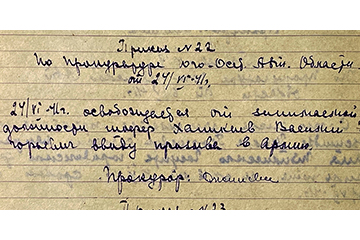 Приказ № 22
По Прокуратуре Юго-Осет. Авт. Области
от 24/VI-41г.
24/VI-41г. освобождается от занимаемой
должности шофер Василий
ввиду призыва в Армию.
Прокурор:
№ 23